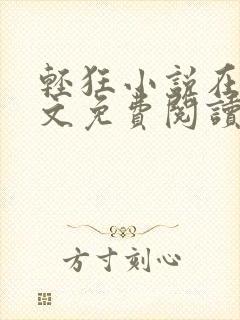 輕狂小說在
文免費閱讀
方寸刻心